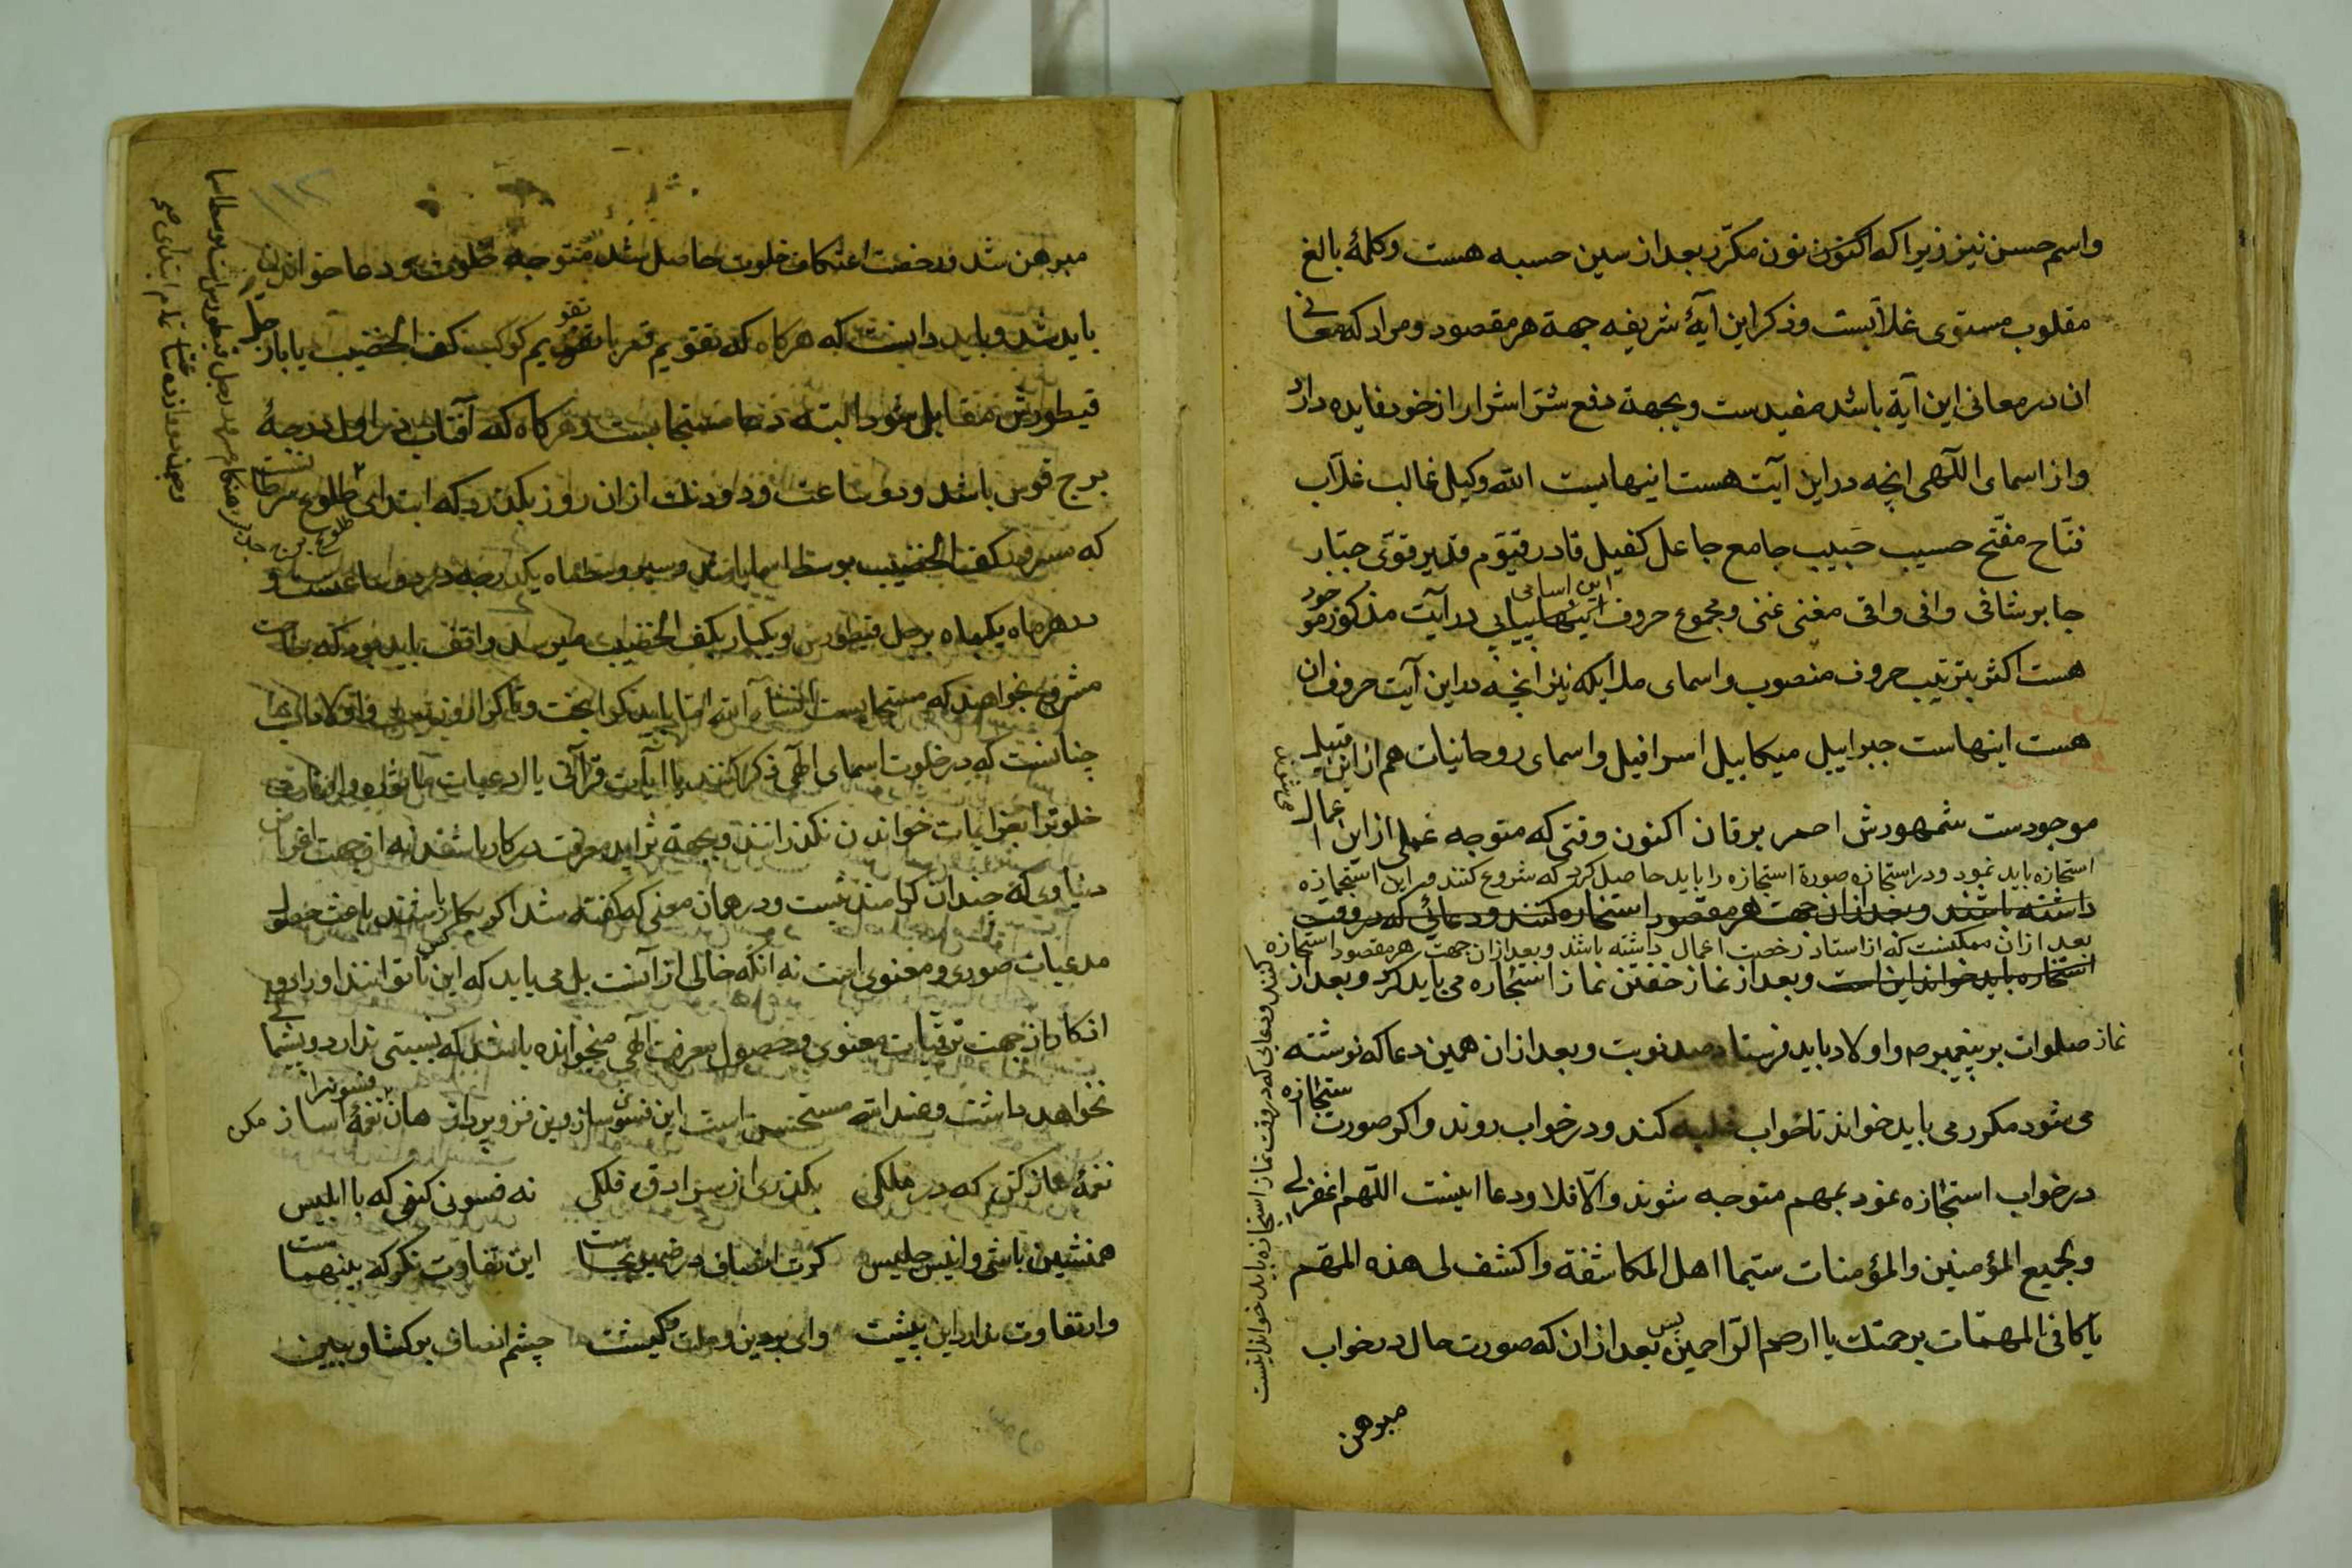 واسم حسن نیز زیرا که اکنون نون مکرّر بعد از سین حسبه هست وکلمهٔ بالغ
مقلوب مستوی غلابست وذکر این آیهٔ شریفه جهة هر مقصود ومراد که معانی
ان در معانی این آیة باشد مفیدست وبجهة دفع شرّ اشرار از خود فایده دارد
واز اسمای اللهی انچه در این آیت هست اینهاست الله وکیل غالب غلاب
فتّاح مفتّح حسیب حبیب جامع جاعل کفیل قادر قیّوم قدیر قوّی جبّار
این اسامی
جابر شافی وافی واقی مغنی غنی ومجموع حروف در آیت مذکور موجود
هست اکثر بترتیب حروف منصوب واسمای ملایکه نیز انچه در این آیت حروف ان
هست اینهاست جبراییل میکاییل اسرافیل واسمای روحانیات هم از این قبیل
موجودست شمهورش احمر برقان اکنون وقتی که متوجه عملی از این اعمال می شوند
استجازه باید نمود ودر استجازه صورة استجازه را باید حاصل کرد که شروع کنند ودر این استجازه
داشته باشند وبعد ازان جهت هر مقصود استخاره کنند ودعائی که در وقت
بعد ازان ممکنست که از استاد رخصت اعمال داشته باشد وبعد ازان جهت هر مقصود استجازه
کنند ودعایی که در وقت نماز استجازه باید خواند اینست
استخاره باید خواند این است وبعد از نماز خفتن نماز استجازه می باید کرد وبعد از
نماز صلوات بر پیغمبر ص واولاد باید فرستاد صد نوبت وبعد ازان همین دعا که نوشته
می شود مکرر می باید خواند تا خواب غلبه کند ودر خواب روند واکر صورت استجازه
در خواب استجازه نمود بمهم متوجه شوند والّا فلا ودعا اینست اللّهم اغفر لی
وبجمیع المؤمنین والمؤمنات سیّما اهل المکاشفة واکشف لی هذه المهم
یا کافی المهمّات برحمتك یا ارحم الرّاحمین پس بعد ازان که صورت حال در خواب
مبرهن
مبرهن شد ورخصت اعتکاف خلوت حاصل شد متوجه خلوت ودعا خواندن
باید شد وباید دانست که هرکاه که تقویم قمر با تقویم کوکب کف الخضیب یا با رجل
قیطورش مقابل شود البته دعا مستجابست وهرکاه که آفتاب در اول درجهٔ
برج قوس باشد ودو ساعت ودو دنك ازان روز بکذرد که ابتدای طلوع سرطانست
که سرود کف الخضیب بوسط اسما باشد وسیر وسط ماه یکدرجه در دو ساعت و
در هر ماه یکبار برجل قیطورس ویکبار بکف الخضیب میرسد واقف باید بود که حاجت
مشروع بخواهند که مستجابست انشاء الله
چنانست که در خلوت اسمای الهی ذکر کنند یا آیات قرآنی یا ادعیات ماثوره
خلوترا بعزایمات خواندن نکذرانند وبجهة تزاید معرفت در کار باشند نه از جهت اغراض
دنیاوی که چندان کرامند نیست ودر همان معنی که کفته شد اکر بکار باشند باعث حصول
مدعیات صوری ومعنوی است نه انکه خالی از آنست بل می باید که این کس تا تواند اوراد و
اذکار از جهت ترقیات معنوی وحصول معرفت الهی میخوانده باشد که نسبتی ندارد وپشیمانی
نخواهد داشت وعند الله مستحسن است این فسون ساز وین فزو پرداز هان نغمهٔ ساز فسونرا مکن
نغمهٔ ساز کن که در ملکی بکذری از سرادق فلکی نه فسونی کنی که با ابلیس
همنشین باشی وانیس جلیس کرت انصاف در ضمیر بجاست این تفاوت نکر که بینهماست
وار تفاوت ندارد این بیشت وای بر دین وملت وکیشت چشم انصاف برکشا وببین